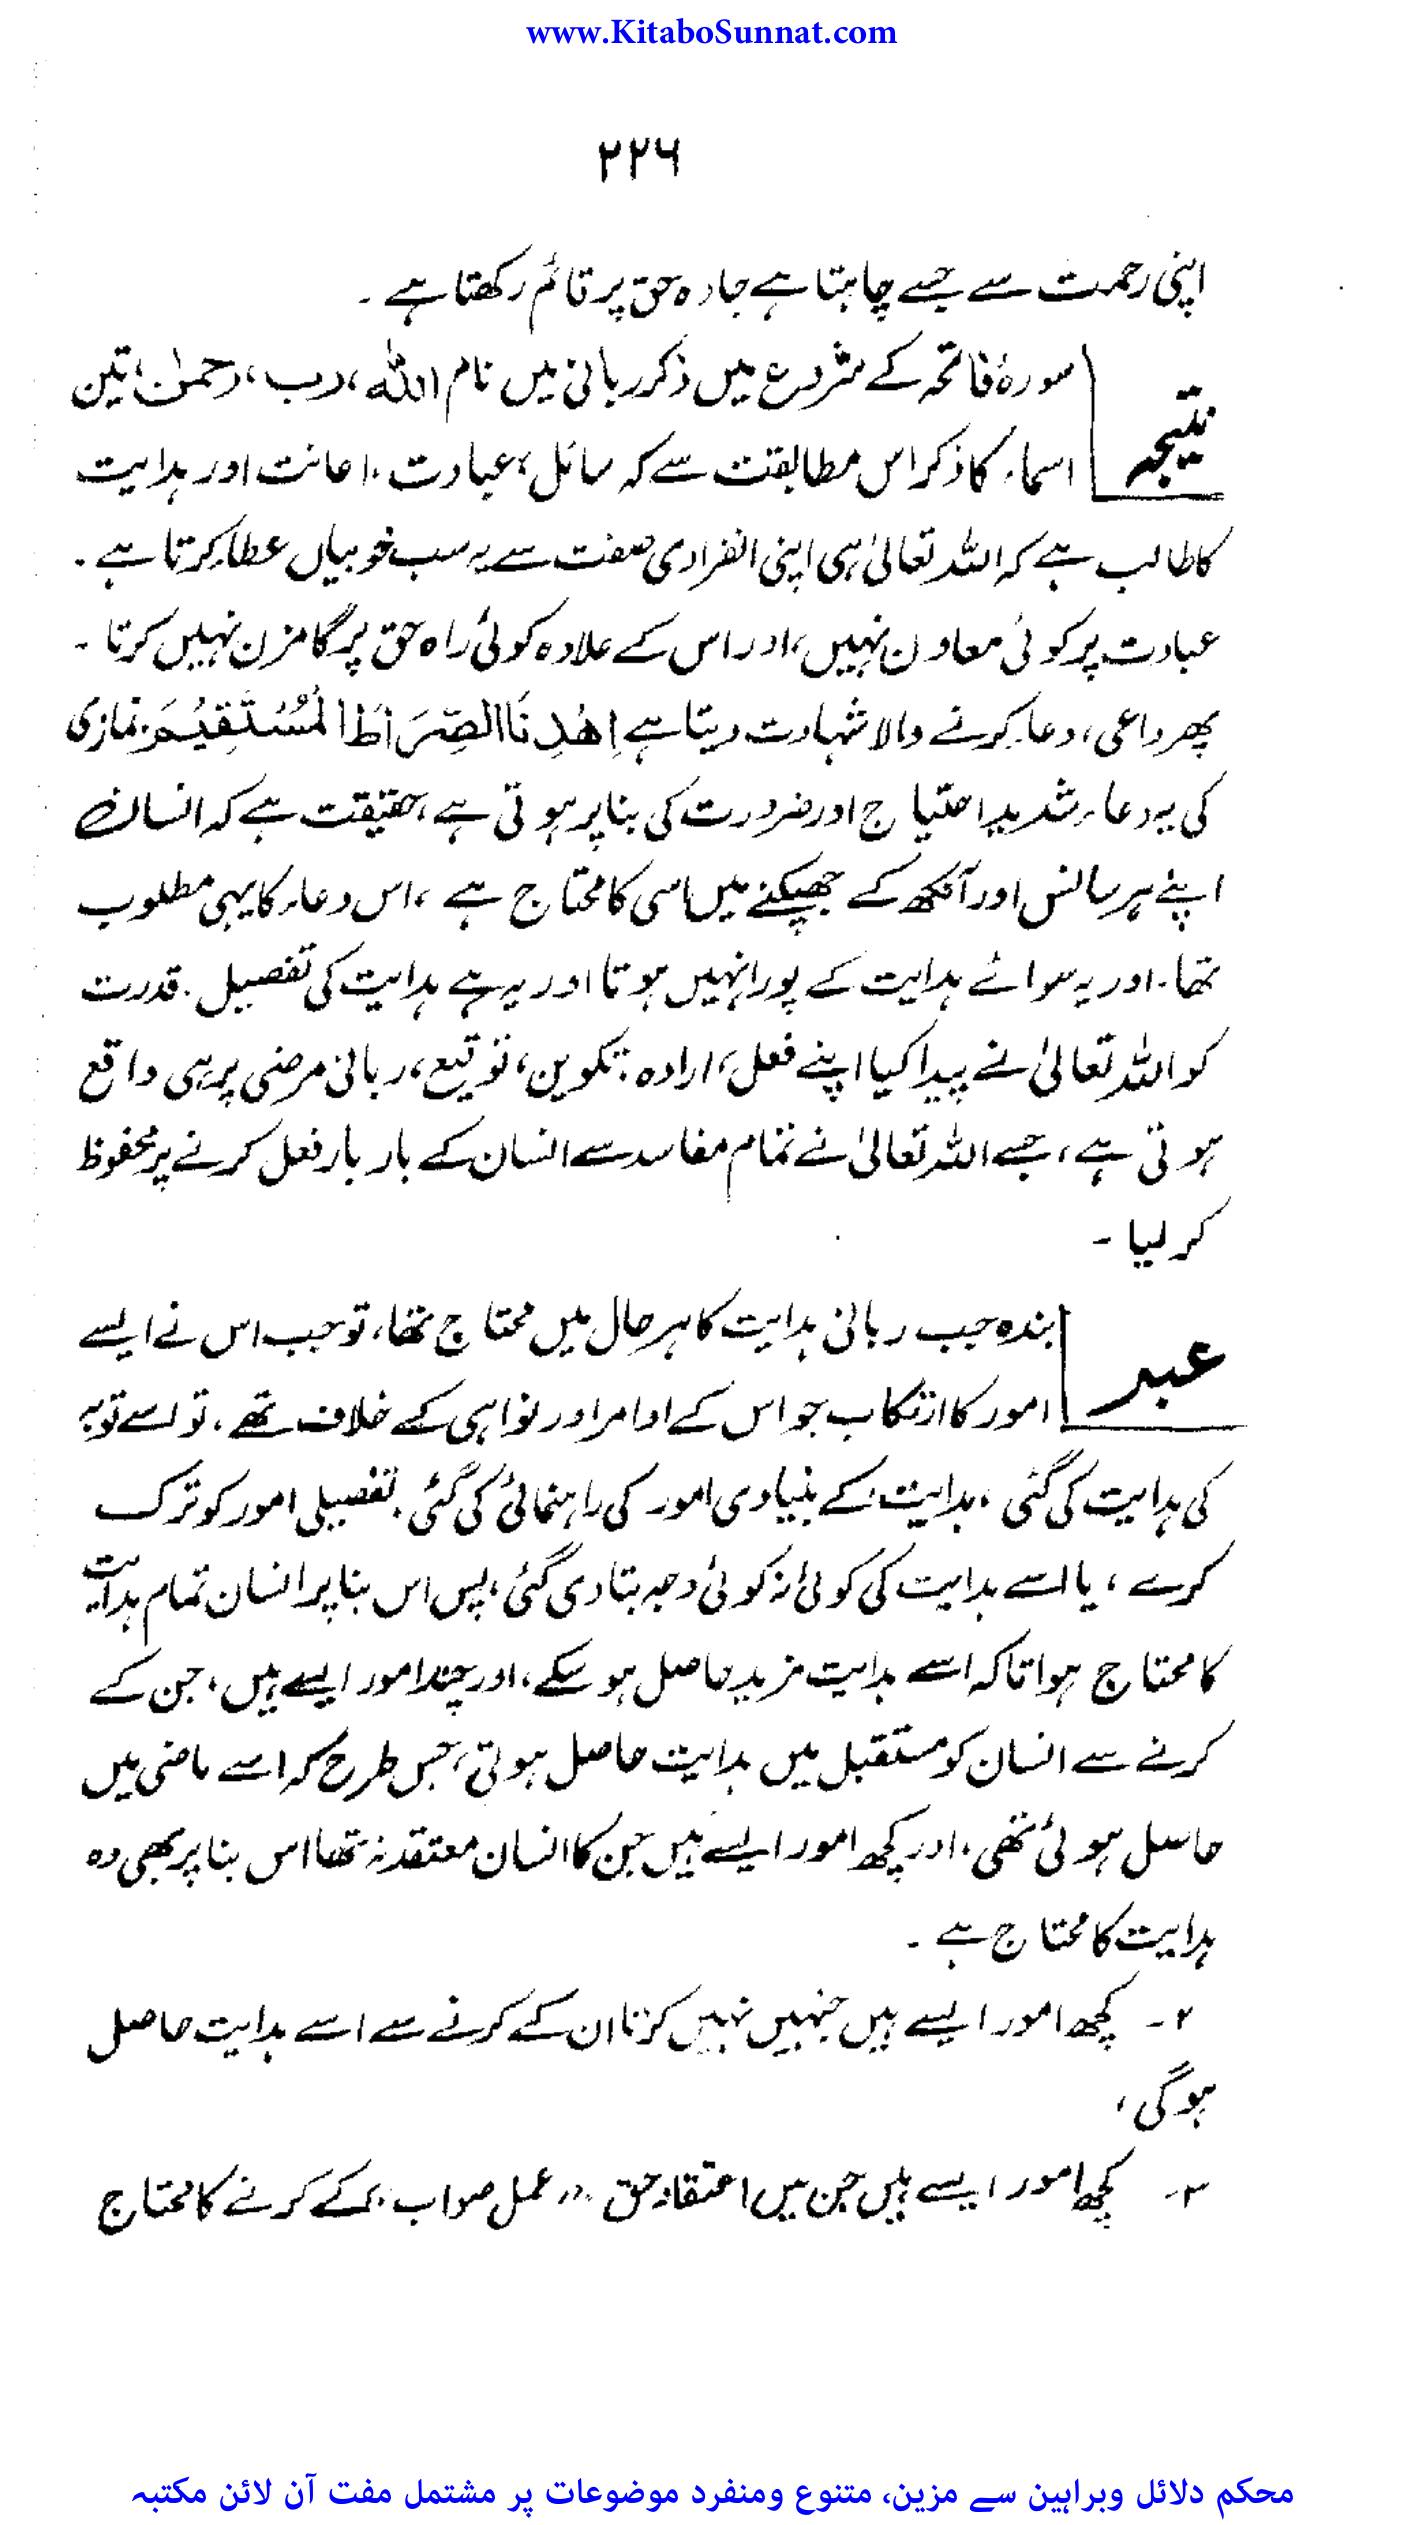 www.KitaboSunnat.com
۲۲۶
اپنی رحمت سے جسے چاہتا ہے جادہ حق پر قائم رکھتا ہے۔
نتیجہ
سورۂ فاتحہ کے شروع میں ذکر ربانی میں نام اللہ، رب، رحمٰن، تین
اسماء کا ذکر اس مطابقت سے کہ سائل، عبادت، اعانت اور ہدایت
کا طالب ہے کہ اللہ تعالیٰ ہی اپنی انفرادی صفت سے یہ سب خوبیاں عطا کرتا ہے۔
عبادت پر کوئی معاون نہیں، اور اس کے علاوہ کوئی راہ حق پر گامزن نہیں کرتا۔
پھر داعی، دعا کرنے والا شہادت دیتا ہے اِھْدِنَا الصِّرَاطَ الْمُسْتَقِیْمَ نمازی
کی یہ دعاء شدید احتیاج اور ضرورت کی بنا پر ہوتی ہے، حقیقت ہے کہ انسان
اپنے ہر سانس اور آنکھ کے جھپکنے میں اسی کا محتاج ہے، اس دعاء کا یہی مطلوب
تھا۔ اور یہ سوائے ہدایت کے پورا نہیں ہوتا اور یہ ہے ہدایت کی تفصیل۔ قدرت
کو اللہ تعالیٰ نے پیدا کیا اپنے فعل، ارادہ، تکوین، توقیع، ربانی مرضی پر ہی واقع
ہوتی ہے، جسے اللہ تعالیٰ نے تمام مفاسد سے انسان کے بار بار فعل کرنے پر محفوظ
کر لیا۔
عبد
بندہ جب ربانی ہدایت کا ہر حال میں محتاج تھا، تو جب اس نے ایسے
امور کا ارتکاب جو اس کے اوامر اور نواہی کے خلاف تھے، تو اسے توبہ
کی ہدایت کی گئی، ہدایت کے بنیادی امور کی راہنمائی کی گئی۔ تفصیلی امور کو ترک
کرے، یا اسے ہدایت کی کوئی نہ کوئی وجہ بتا دی گئی، پس اس بنا پر انسان تمام ہدایت
کا محتاج ہوا تاکہ اسے ہدایت مزید حاصل ہو سکے، اور چند امور ایسے ہیں، جن کے
کرنے سے انسان کو مستقبل میں ہدایت حاصل ہوتی، جس طرح کہ اسے ماضی میں
حاصل ہوئی تھی، اور کچھ امور ایسے ہیں جن کا انسان معتقد نہ تھا اس بنا پر بھی وہ
ہدایت کا محتاج ہے۔
۲۔ کچھ امور ایسے ہیں جنہیں نہیں کرتا ان کے کرنے سے اسے ہدایت حاصل
ہوگی،
۳۔ کچھ امور ایسے ہیں جن میں اعتقاد حق عمل صواب کے کرنے کا محتاج
محکم دلائل وبراہین سے مزین، متنوع ومنفرد موضوعات پر مشتمل مفت آن لائن مکتبہ